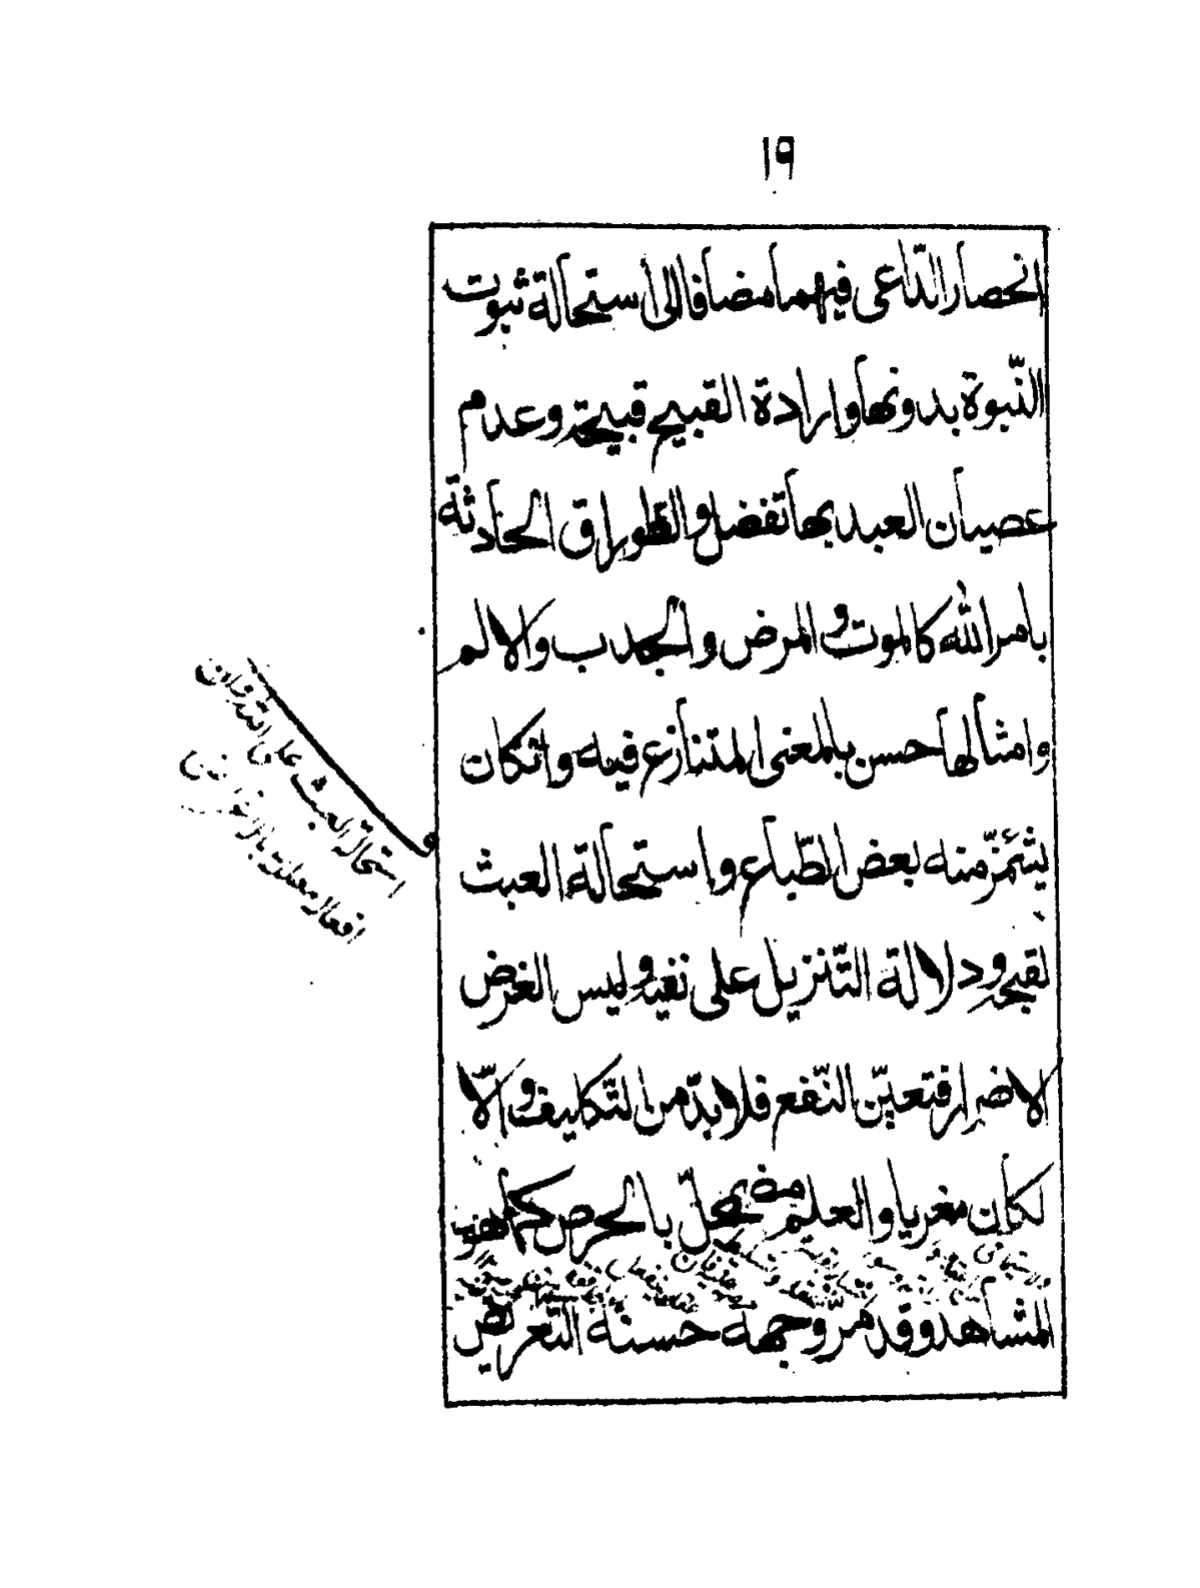 ١٩
انحصار الدّاعى فيهما مضافا الى استحالة ثبوت
النّبوة بدونها وارادة القبيح قبيحة وعدم
عصيان العبد بها تفضل والطوارق الحادثة
بامر الله كالموت و المرض والجدب والالم
وامثالها حسن بالمعنى المتنازع فيه وان كان
يشئمزّ منه بعض الطّباع واستحالة العبث
لقبحه ودلالة التّنزيل على نفيه وليس الغرض
الاضرار فتعيّن النّفع فلا بدّ من التّكليف و الّا
لكان مغريا والعلم يخلّ بالحرص كما هو
المشاهد وقد مرّ وجهه حسنه التّعريض
استحالة العبث على الله وان
افعاله معللة بالاغراض